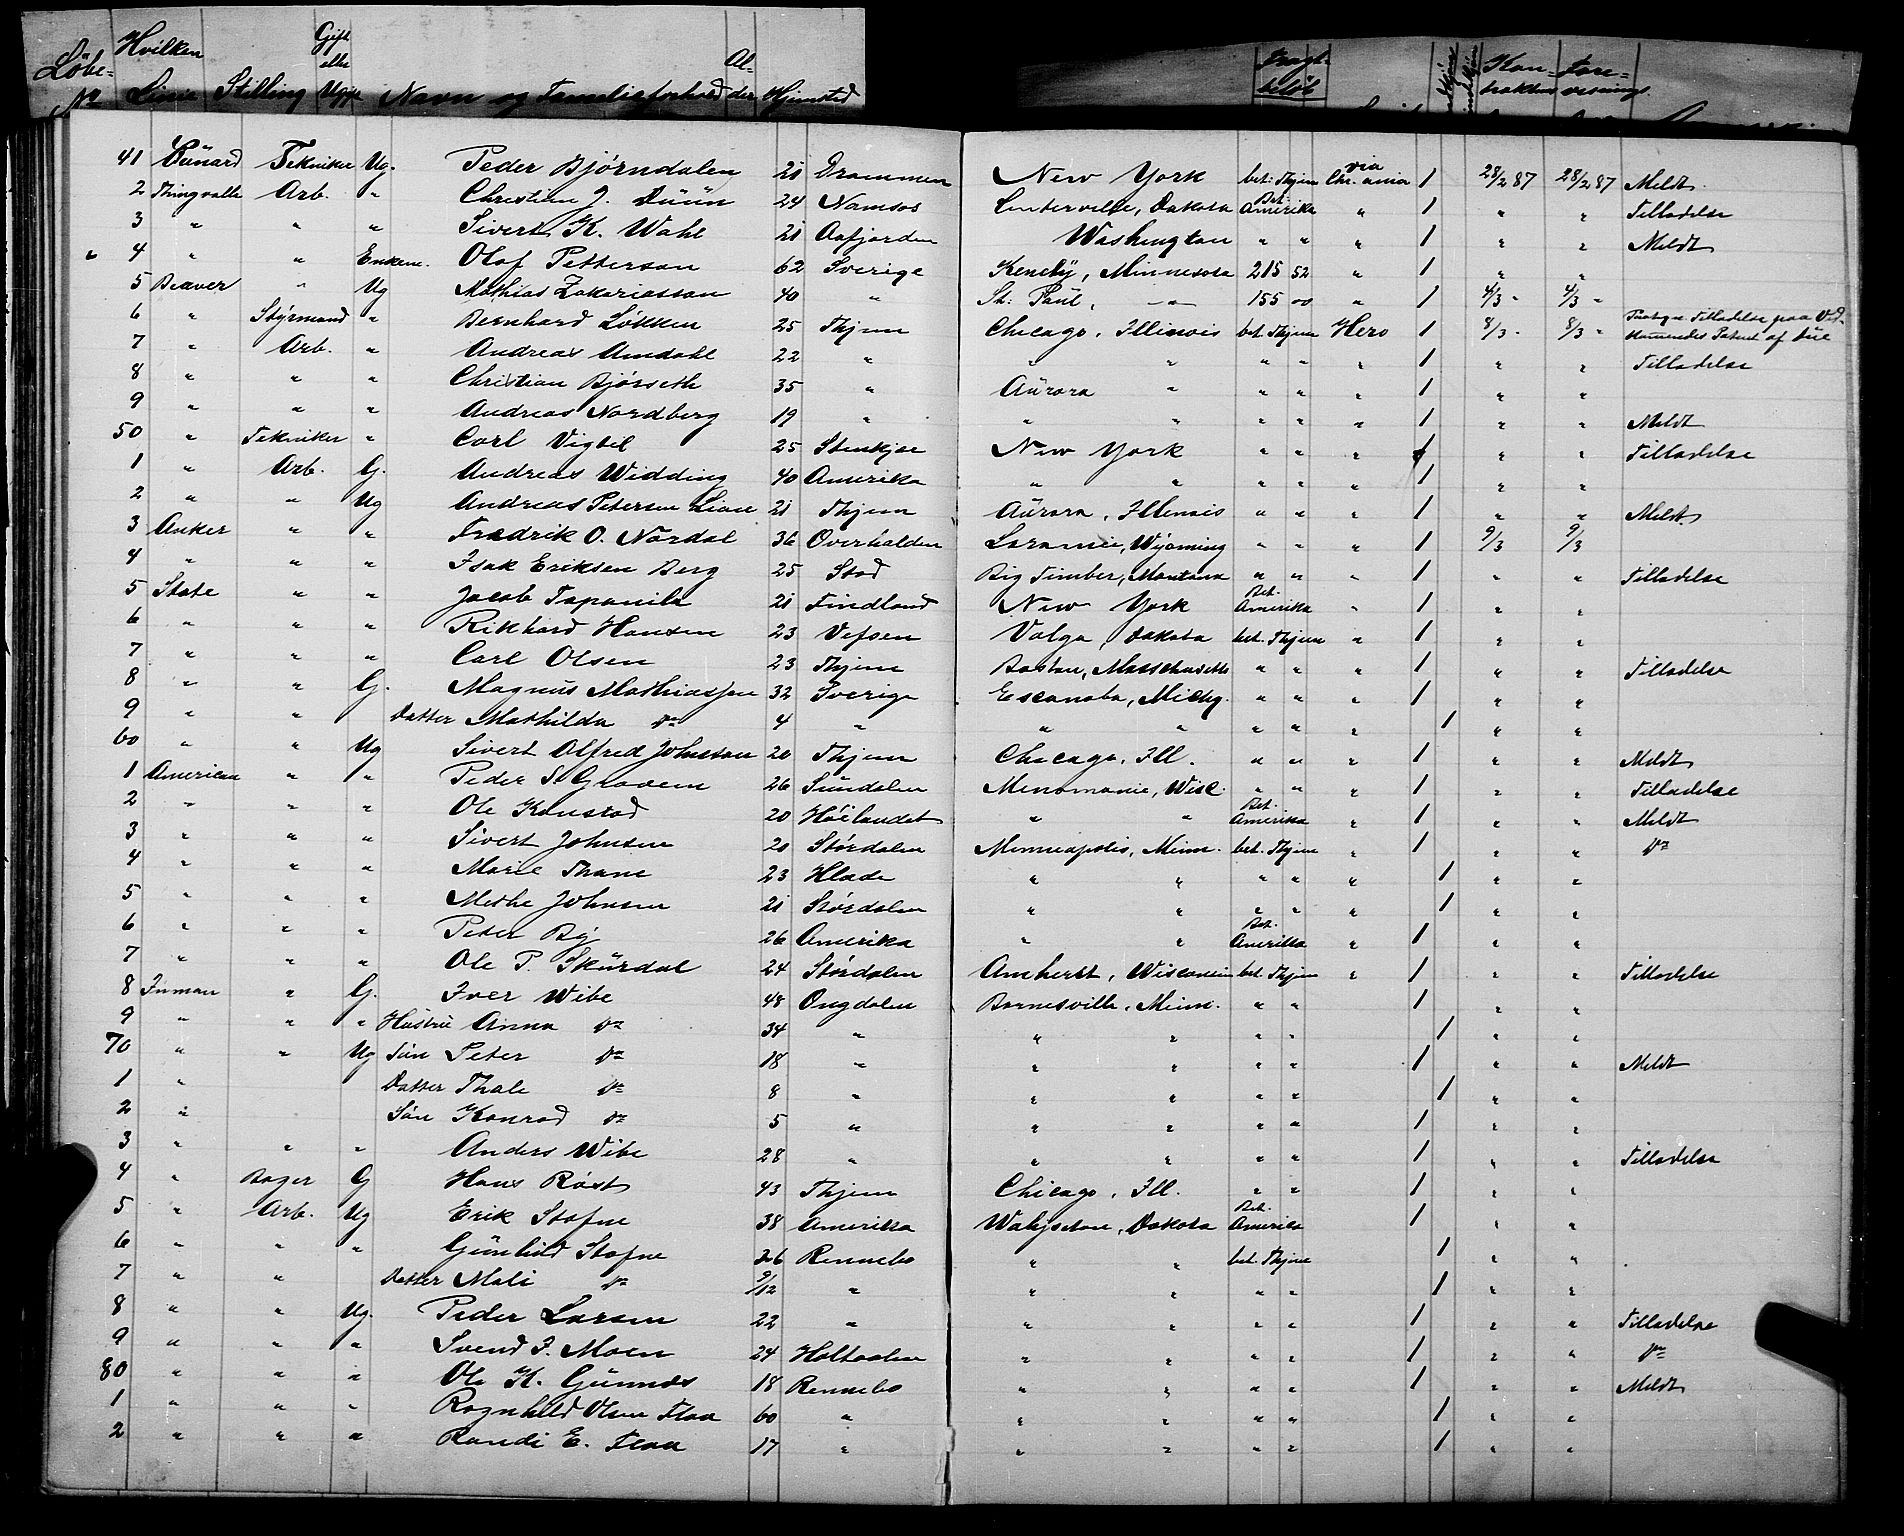 Løbe-No Hvilken Linie Stilling Gift eller Ugift Navn og Familieforhold Alder Hjemsted Fragtbeløb Kontraktens Forevisnings
41 Cunard Tekniker Ug. Peder Bjørndalen 21 Drammen New York bet. Thjem via Chr.ania 1 28/2 87 28/2 87 Meldt
2 Thingvalla Arb. " Christian J. Duun 24 Namsos Centerville, Dakota Bet. Amerika " 1 " " Tilladelse
3 " " " Sivert K. Wahl 21 Aafjorden Washington " " " 1 " " Meldt
4 " " Enkem. Olof Petterson 62 Sverige Minnesota 215 52 " 1 " "
5 Beaver " Ug Mathias Zakariasson 40 " St. Paul, " 155 00 " 1 4/3 " 4/3 "
6 " Styrmand " Bernhard Løkken 25 Thjem Chicago, Illinois bet. Thjem Hero 1 8/3 " 8/3 " Tilladelse paa Ved-kommendes Patent af
7 " Arb. " Andreas Amdahl 22 " " " " " " 1 " " Tilladelse
8 " " " Christian Bjørseth 35 " Aurora " " " " 1 " "
9 " " " Andreas Nordberg 19 " " " " " " 1 " " Meldt
50 " Tekniker " Carl Vigtel 25 Stenkjær New York " " " 1 " " Tilladelse
1 " Arb. G. Andreas Widding 40 Amerika " " " " " 1 " "
2 " " Ug Andreas Petersen Lian 21 Thjem Aurora, Illinois " " " 1 " " Meldt
3 Anker " " Fredrik O. Nordal 36 Overhalden Laramie, Wyoming " " " 1 9/3 9/3
4 " " " Isak Eriksen Berg 25 Stod Big Timber, Montana " " " 1 " " Tilladelse
5 State " " Jacob Tapanila 21 Findland New York Bet. Amerika " 1 " "
6 " " " Rikhard Hansen 23 Vefsen Volga, Dakota bet. Thjem " 1 " "
7 " " " Carl Olsen 23 Thjem Boston, Massachusetts " " " 1 " " Tilladelse
8 " " G. Magnus Mathiassen 32 Sverige Escanaba, Michg. " " " 1 " "
9 " " Datter Mathilda do 4 " " " " " " 1 " "
60 " " Ug Sivert Alfred Johnsen 20 Thjem Chicago, Ill. " " " 1 " " Meldt
1 American " " Peder S. Gravem 26 Sundalen Menomonie, Wisc. " " " 1 " " Tilladelse
2 " " " Ole Konstad 20 Høilandet " " Bet. Amerika " 1 " " Meldt
3 " " " Sivert Johnsen 20 Størdalen Minneapolis, Minn. bet. Thjem " 1 " " do
4 " " " Marie Thane 23 Hlade " " " " " 1 " "
5 " " " Methe Johnsen 21 Størdalen " " " " " 1 " "
6 " " " Peder By 26 Amerika " " Bet. Amerika " 1 " "
7 " " " Ole P. Skurdal 24 Størdalen Amherst, Wisconsin bet. Thjem " 1 " " Tilladelse
8 Inman " G. Iver Wibe 48 Ongdalen Barnesville, Minn. " " 1 " "
9 " " " Hustru Anna do 34 " " " " " 1 " "
70 " " Ug Søn Peter do 18 " " " " " 1 " " Meldt
1 " Datter Thale do 8 " " " " " 1 " "
2 " Søn Konrad do 5 " " " " " 1 " "
3 " " " Anders Wibe 28 " " " " " 1 " " Tilladelse
4 " Bager G Hans Røst 43 Thjem Chicago, Ill. " " 1 " "
5 " Arb. Ug Erik Stafne 38 Amerika Wahpeton, Dakota Bet. Amerika 1 " "
6 " " " Gunhild Stafne 26 Rennebo " " bet. Thjem 1 " "
7 " " Datter Mali do 9/12 " " " " " 1 " "
8 " " Ug. Peder Larsen 22 " " " " " 1 " " Tilladelse
9 " " " Svend J. Moen 24 Holtaalen " " " " 1 " " do
80 " " " Ole K. Gunnes 18 Rennebo " " " " 1 " " Meldt
1 " " " Ragnhild Olsen Flaa 60 " " " " " 1 " "
2 " " " Randi E. Flaa 17 " " " " " 1 " "